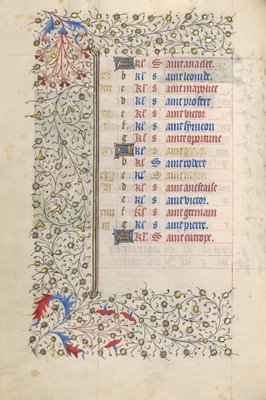 A kl' S aint anaclet.
b kl' s aint leonide.
c kl' s aint marpoice
d kl' s aint prosert
e kl' s aint victor.
f kl' s aint symeon
g kl' s ainte oportune
A kl' s
b kl' s aint robert
c kl' s
d kl' s aint anestaise
e kl' s aint victor.
f kl' s aint germain
g kl' s aint pierre.
A kl' S aint eutrope.